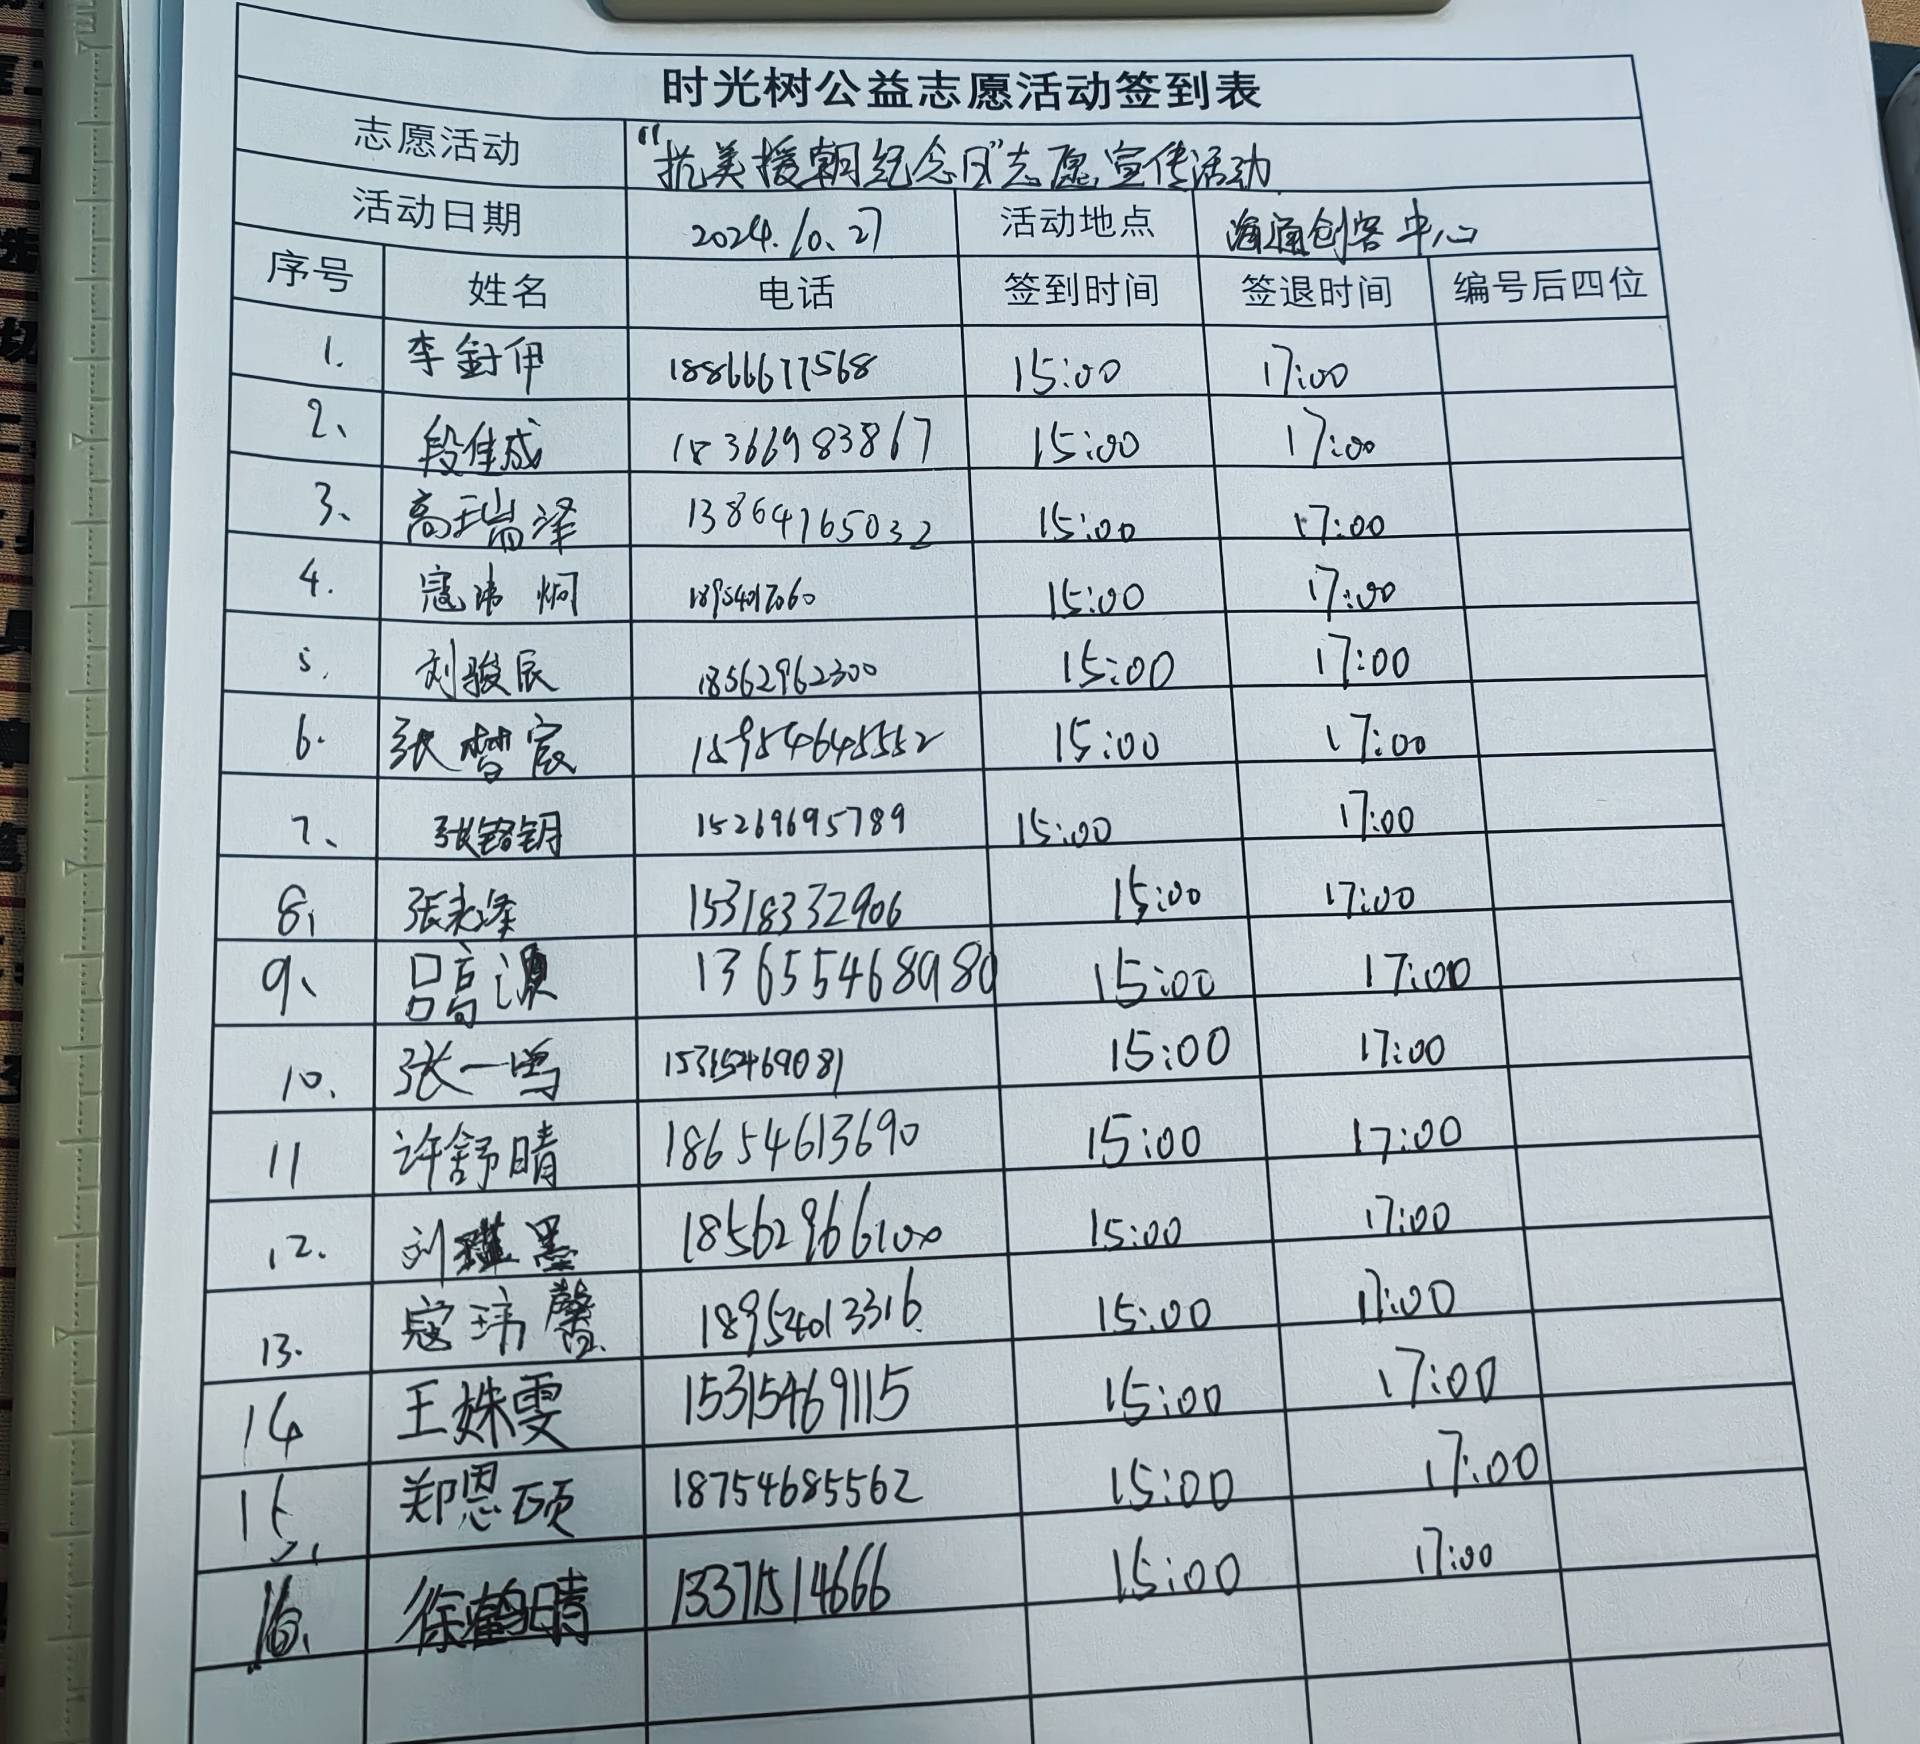 时光树公益志愿活动签到表
志愿活动 “抗美援朝纪念日”志愿宣传活动
活动日期 2024.10.27 活动地点 海通创客中心
序号 姓名 电话 签到时间 签退时间 编号后四位
1. 李 伊 18866677568 15:00 17:00
2、 段佳成 18366983867 15:00 17:00
3、 高瑞泽 13864765032 15:00 17:00
4. 寇沛炯 18954017060 15:00 17:00
5. 刘骏辰 18562962300 15:00 17:00
6. 张楚宸 15:00 17:00
7、 张铭钥 15269695789 15:00 17:00
8、 张永泽 15318332906 15:00 17:00
9、 吕高源 13655468980 15:00 17:00
10. 张一鸣 15315469081 15:00 17:00
11 许舒晴 18654613690 15:00 17:00
12. 刘瑾墨 18562966100 15:00 17:00
13. 寇玮馨 18954013316 15:00 17:00
14 王姝雯 15315469115 15:00 17:00
15、 郑恩硕 18754685562 15:00 17:00
16、 徐鹤晴 13371514666 15:00 17:00